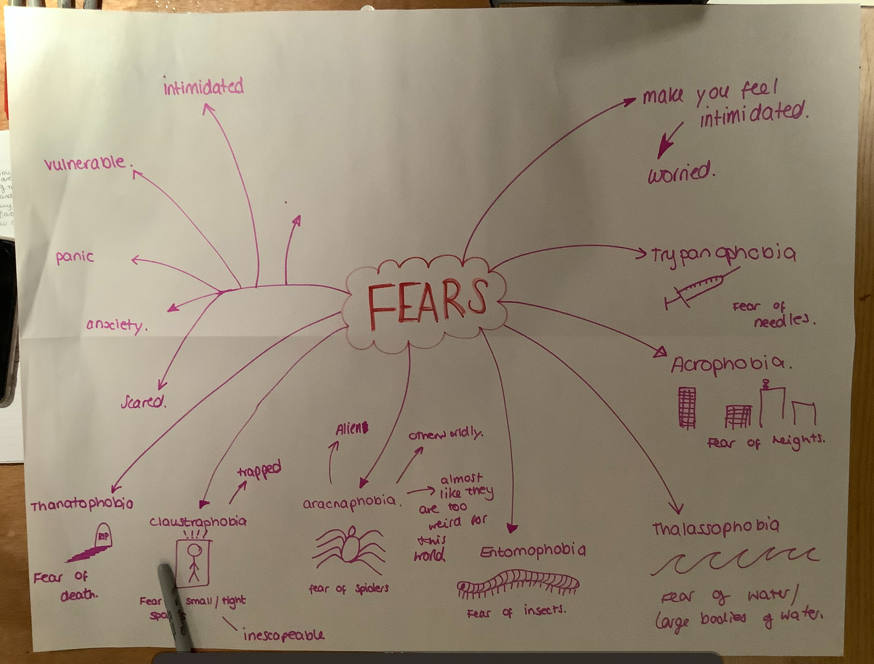 FEARS
intimidated
vulnerable.
panic
anxciety.
scared.
make you feel
intimidated.
worried.
Trypanophobia
Fear of
needles.
Acrophobia.
Fear of heights.
Thalassophobia
Fear of water/
large bodies of water.
Entomophobia
Fear of insects.
aracnaphobia.
Aliens
otherworldly.
almost
like they
are too
weird for
this
world
fear of spiders
claustraphobia
trapped
Fear small/tight
inescapeable
Thanatophobia
RIP
Fear of
death.